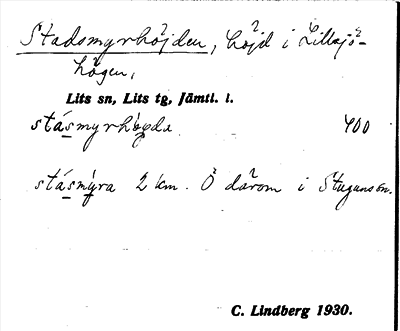 Stadsmyrhöjden, höjd i Lillsjö-
högen,
Lits sn, Lits tg, Jämtl. l.
stásmyrhö̀yda 400
stásmy̌ra 2 km. Ö därom i Stuguns sn.
C. Lindberg 1930.